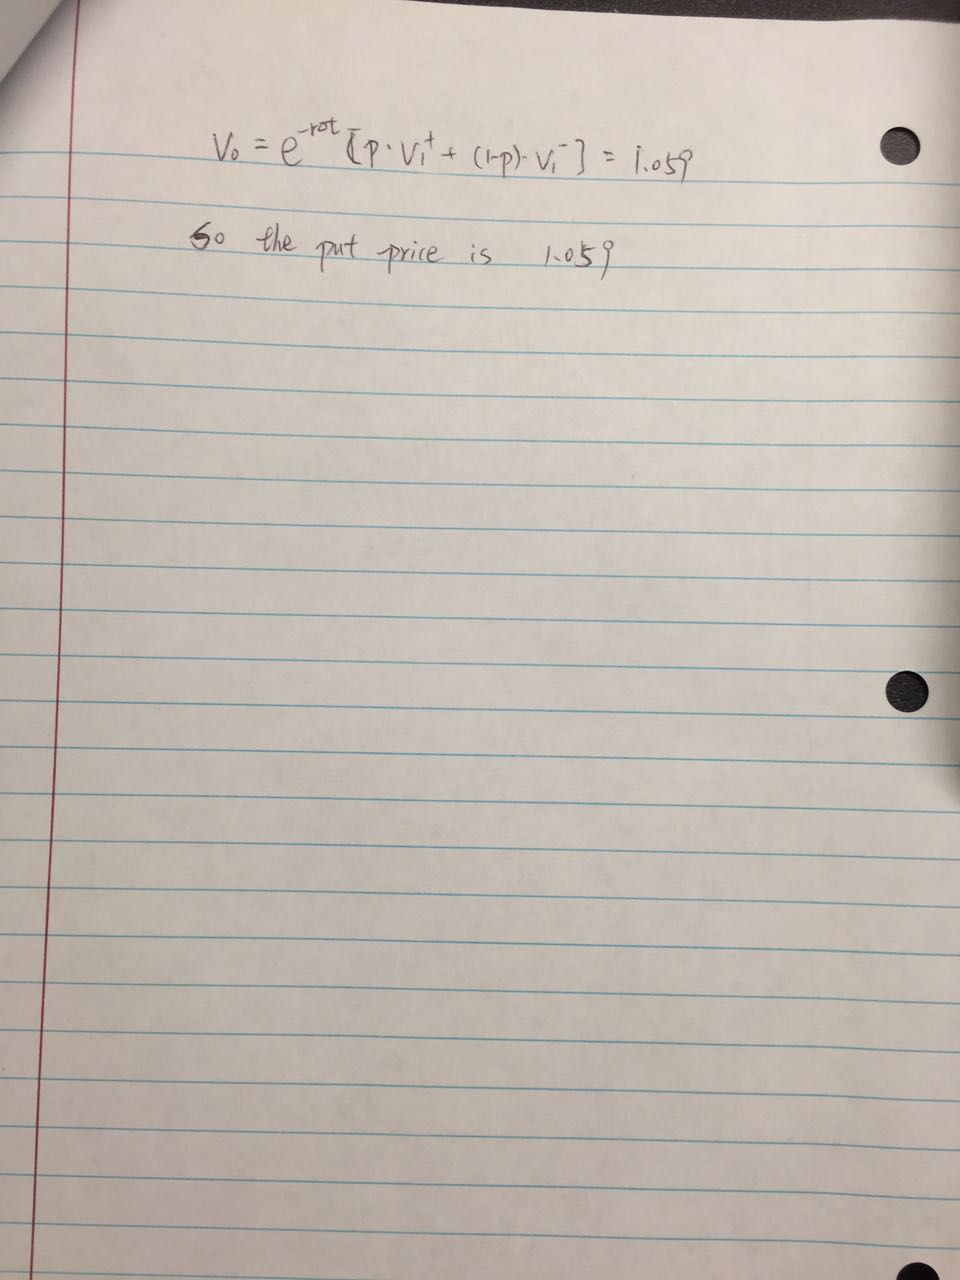 V₀ = e^{-rδt} [p·V₁⁺ + (1-p)·V₁⁻] = 1.059
So the put price is 1.059